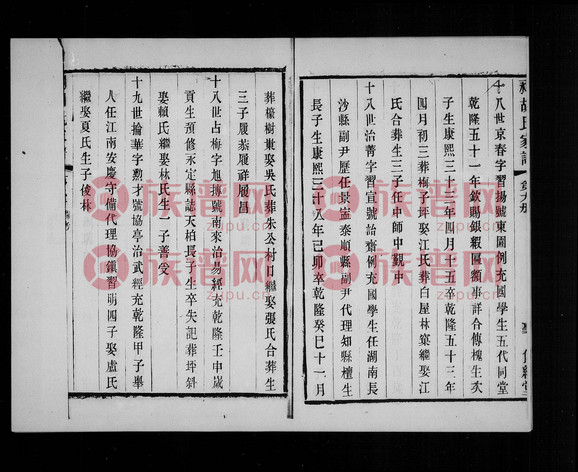 胡氏家譜
十八世京春字習揚號東園例充國學生五代同堂
乾隆五十一年欽賜銀緞匾額事詳合傳槐生次
子生康熙三十二年四月十五卒乾隆五十三年
四月初三葬梅子坪娶江氏葬白屋林寀繼娶江
氏合葬生三子任中師中觀中
十八世治菁字習宣號諭齋例充國學生任湖南長
沙縣副尹歷任景寧泰順縣副尹代理知縣檀生
長子生康熙三十八年己卯卒乾隆癸巳十一月
葬櫞樹東娶吳氏葬朱公村口繼娶張氏合葬生
三子履恭履祥履昌
十八世占梅字旭摶號南來治易經充乾隆壬申歲
貢生預修永定縣誌天柏長子生卒失記葬坪斜
娶賴氏繼娶林氏生一子善受
十九世掄華字勳才號協亭治武經充乾隆甲子舉
人任江南安慶守備代理協鎮習明四子娶盧氏
繼娶夏氏生子俊林
族譜网
zupu.cn